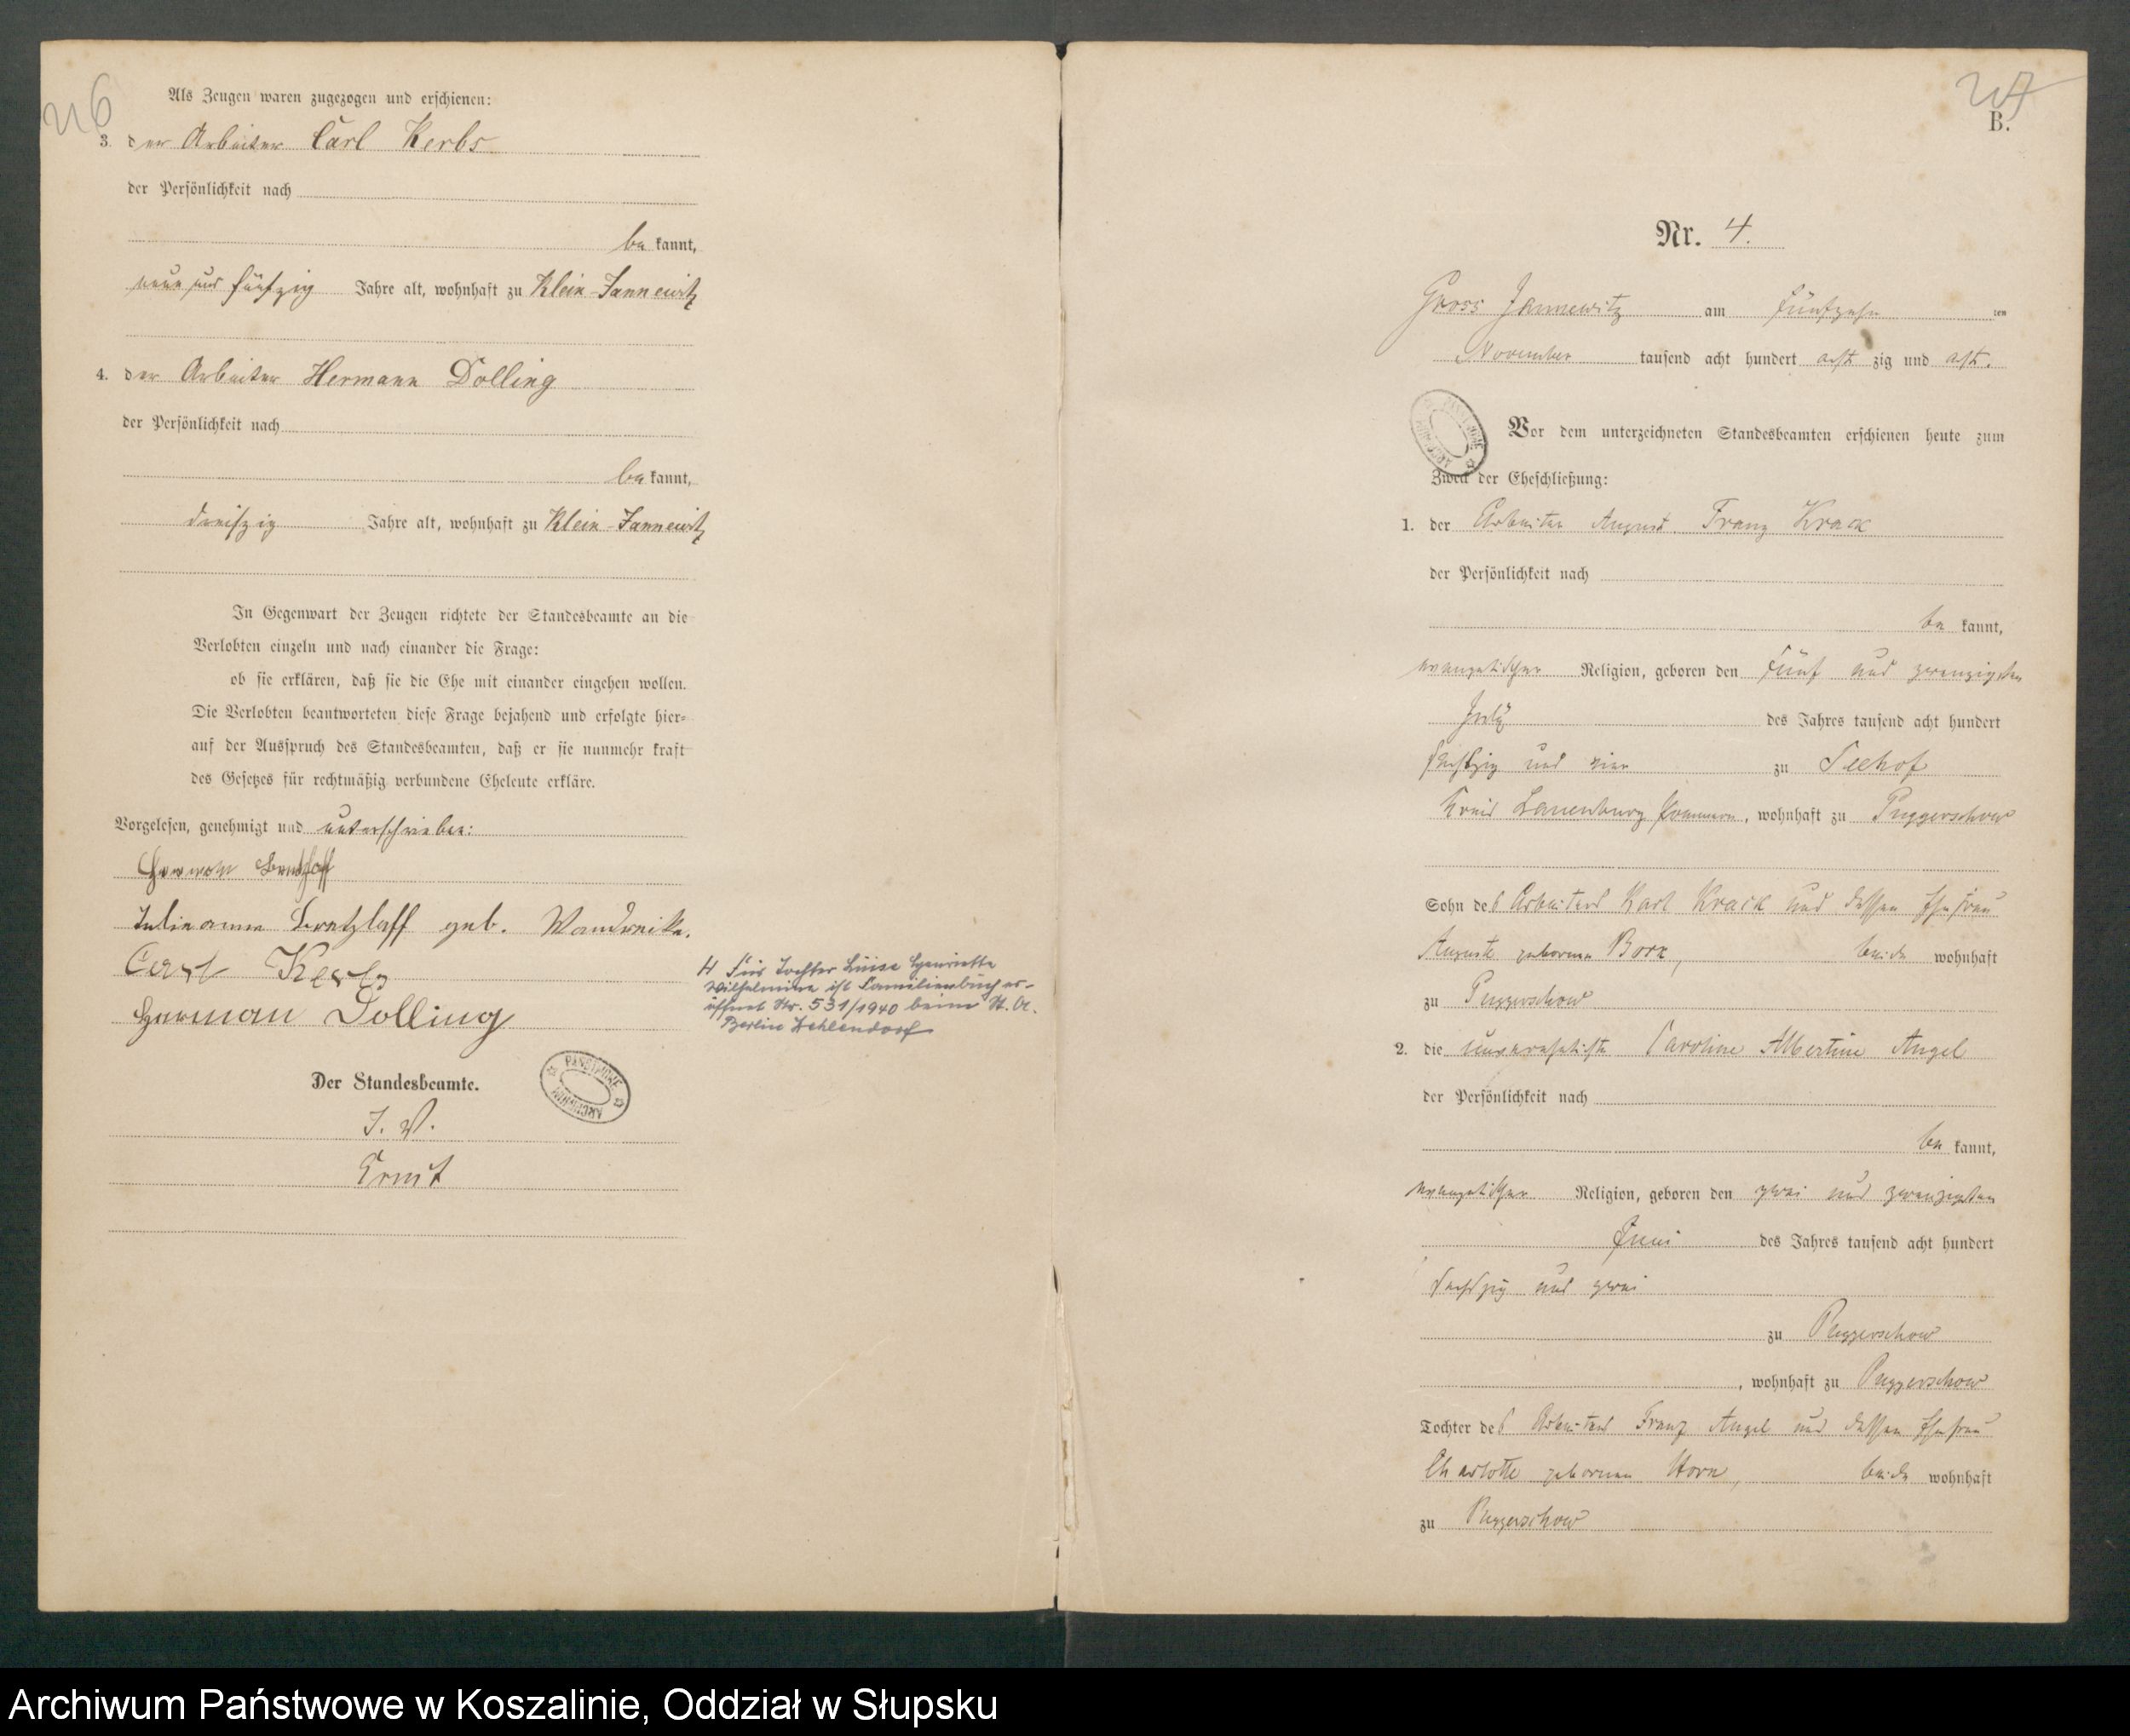 Als Zeugen waren zugezogen und erschienen:
3. der Arbeiter Carl Kerbs
der Persönlichkeit nach
be kannt,
neun und fünfzig Jahre alt, wohnhaft zu Klein-Jannewitz
4. der Arbeiter Hermann Dolling
der Persönlichkeit nach
be kannt,
dreißig Jahre alt, wohnhaft zu Klein-Jannewitz
In Gegenwart der Zeugen richtete der Standesbeamte an die
Verlobten einzeln und nach einander die Frage:
ob sie erklären, daß sie die Ehe mit einander eingehen wollen.
Die Verlobten beantworteten diese Frage bejahend und erfolgte hier-
auf der Ausspruch des Standesbeamten, daß er sie nunmehr kraft
des Gesetzes für rechtmäßig verbundene Eheleute erkläre.
Vorgelesen, genehmigt und unterschrieben:
Bratzlaff
geb. Wandreike.
Carl Kerbs
Herman Dolling
H Für Tochter Luise Henriette
Wilhelmine ist Familienbuch er-
öffnet Nr. 531/1940 beim St. A.
Berlin Zehlendorf
Der Standesbeamte.
J. V.
Ernst
B.
Nr. 4.
Gross Jannewitz am fünfzehn ten
November tausend acht hundert acht zig und acht.
Vor dem unterzeichneten Standesbeamten erschienen heute zum
Zweck der Eheschließung:
1. der Arbeiter August Franz Krack
der Persönlichkeit nach
be kannt,
evangelischer Religion, geboren den fünf und zwanzigsten
July des Jahres tausend acht hundert
sechszig und vier zu Seehof
Kreis Lauenburg Pommern, wohnhaft zu Puggerschow
Sohn des Arbeiters Karl Krack und dessen Ehefrau
Auguste geborene Bork, beide wohnhaft
zu Puggerschow
2. die unverehelichte Caroline Albertine Angel
der Persönlichkeit nach
be kannt,
evangelischer Religion, geboren den zwei und zwanzigsten
Juni des Jahres tausend acht hundert
sechszig und zwei
zu Puggerschow
, wohnhaft zu Puggerschow
Tochter des Arbeiters Franz Angel und dessen Ehefrau
Charlotte geborenen Horn, beide wohnhaft
zu Puggerschow
Archiwum Państwowe w Koszalinie, Oddział w Słupsku